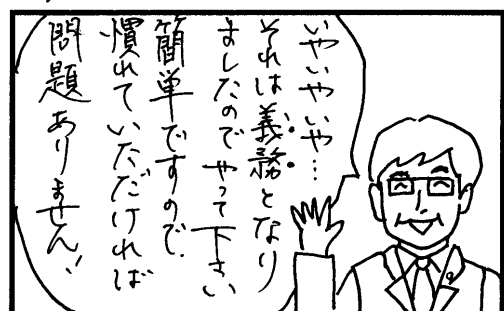 いやいやいや…
それは義務となり
ましたのでやって下さい
簡単ですので、
慣れていただければ
問題ありません!